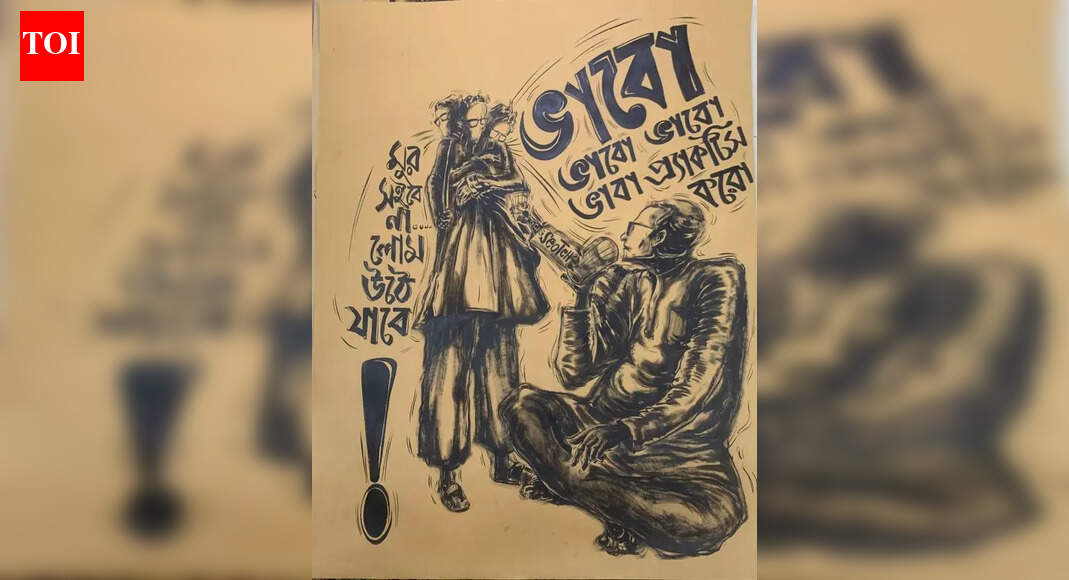 TOI
ভাবো
ভাবো ভাবো
ভাবা প্র্যাকটিস
করো
মুর
সইবে
না....
লোম
উঠে
যাবে
!